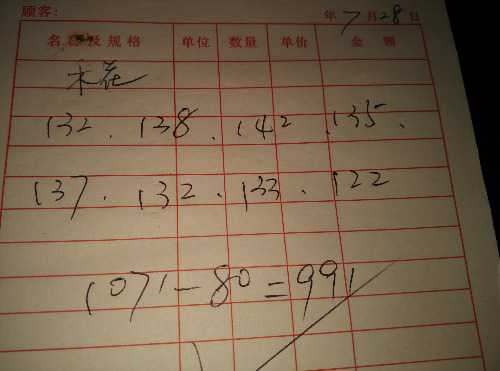 顾客： 年7月28日
名称及规格 单位 数量 单价 金额
木花
132. 138. 142. 135.
137. 132. 133. 122
1071-80=991